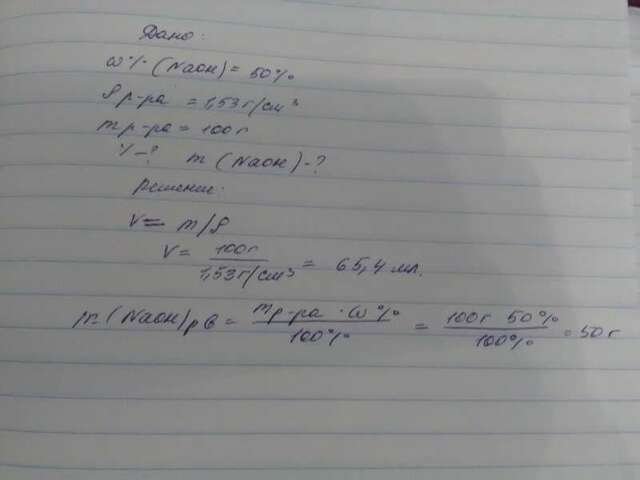 Дано:
ω% (NaOH) = 50%
ρ р-ра = 1,53 г/см³
m р-ра = 100 г
V-? m (NaOH)-?
Решение:
V = m/ρ
V = 100г / 1,53г/см³ = 65,4 мл.
m (NaOH) рв = m р-ра · ω% / 100% = 100г 50% / 100% = 50 г